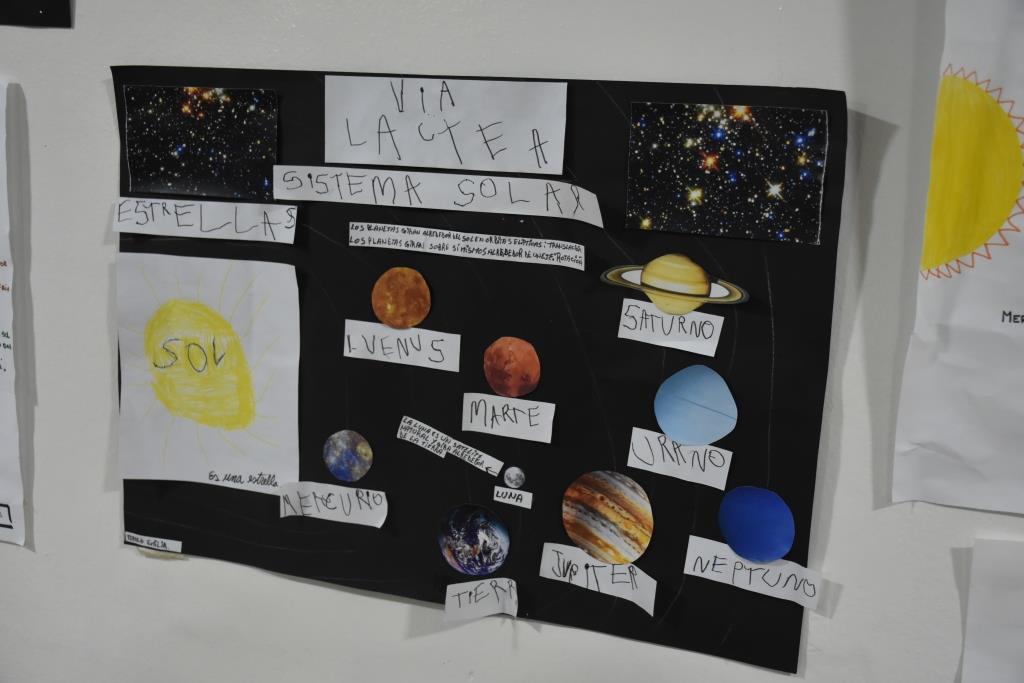 VIA
LACTEA
SISTEMA SOLAR
ESTRELLAS
LOS PLANETAS GIRAN ALREDEDOR DEL SOL EN ORBITAS ELIPTICAS: TRANSLACIÓN
LOS PLANETAS GIRAN SOBRE SI MISMOS ALREDEDOR DE UN EJE: ROTACIÓN
SOL
Es una estrella
VENUS
SATURNO
MARTE
URANO
LA LUNA ES UN SATELITE
NATURAL Y GIRA ALREDEDOR
DE LA TIERRA
LUNA
MERCURIO
TIERR
JUPITER
NEPTUNO
MER